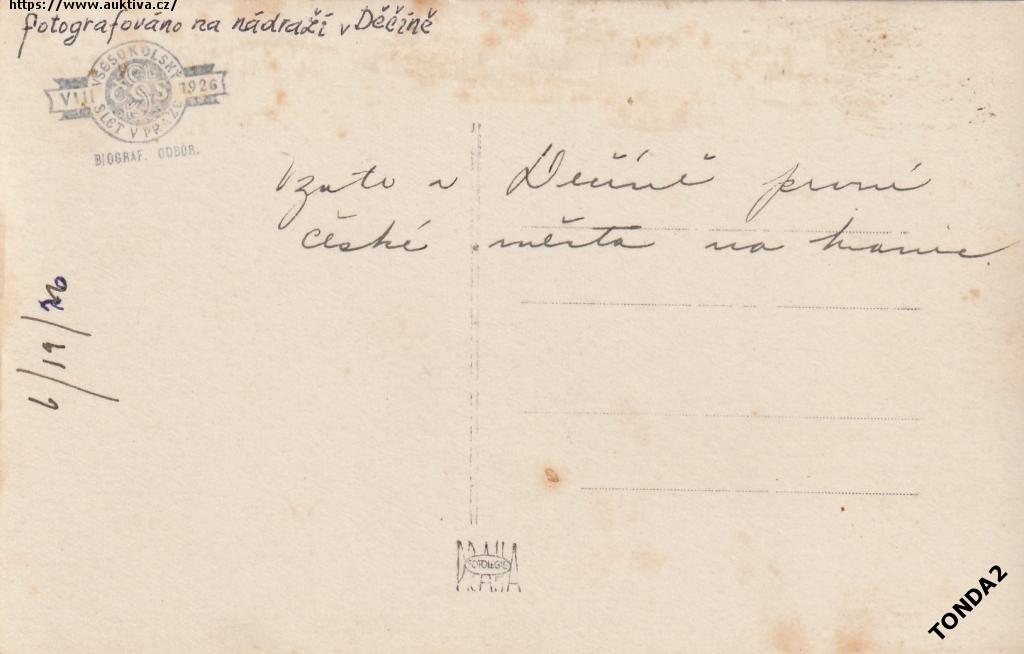 https://www.auktiva.cz/
fotografováno na nádraží v Děčíně
VŠESOKOLSKÝ
VIII 1926
SLET V PRAZE
BIOGRAF. ODBOR.
Vzato v Děčíně první
české města na hranic.
6/19/26
FOTOLEGIE
PRAHA
TONDA2